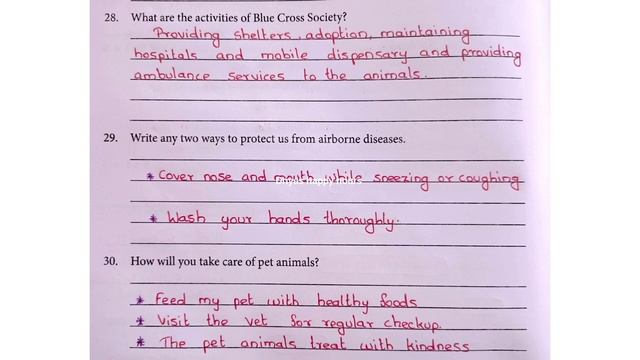 28. What are the activities of Blue Cross Society?
Providing shelters, adoption, maintaining
hospitals and mobile dispensary and providing
ambulance services to the animals.
29. Write any two ways to protect us from airborne diseases.
* Cover nose and mouth while sneezing or coughing
* Wash your hands thoroughly.
30. How will you take care of pet animals?
* Feed my pet with healthy foods
* Visit the vet for regular checkup.
* The pet animals treat with kindness